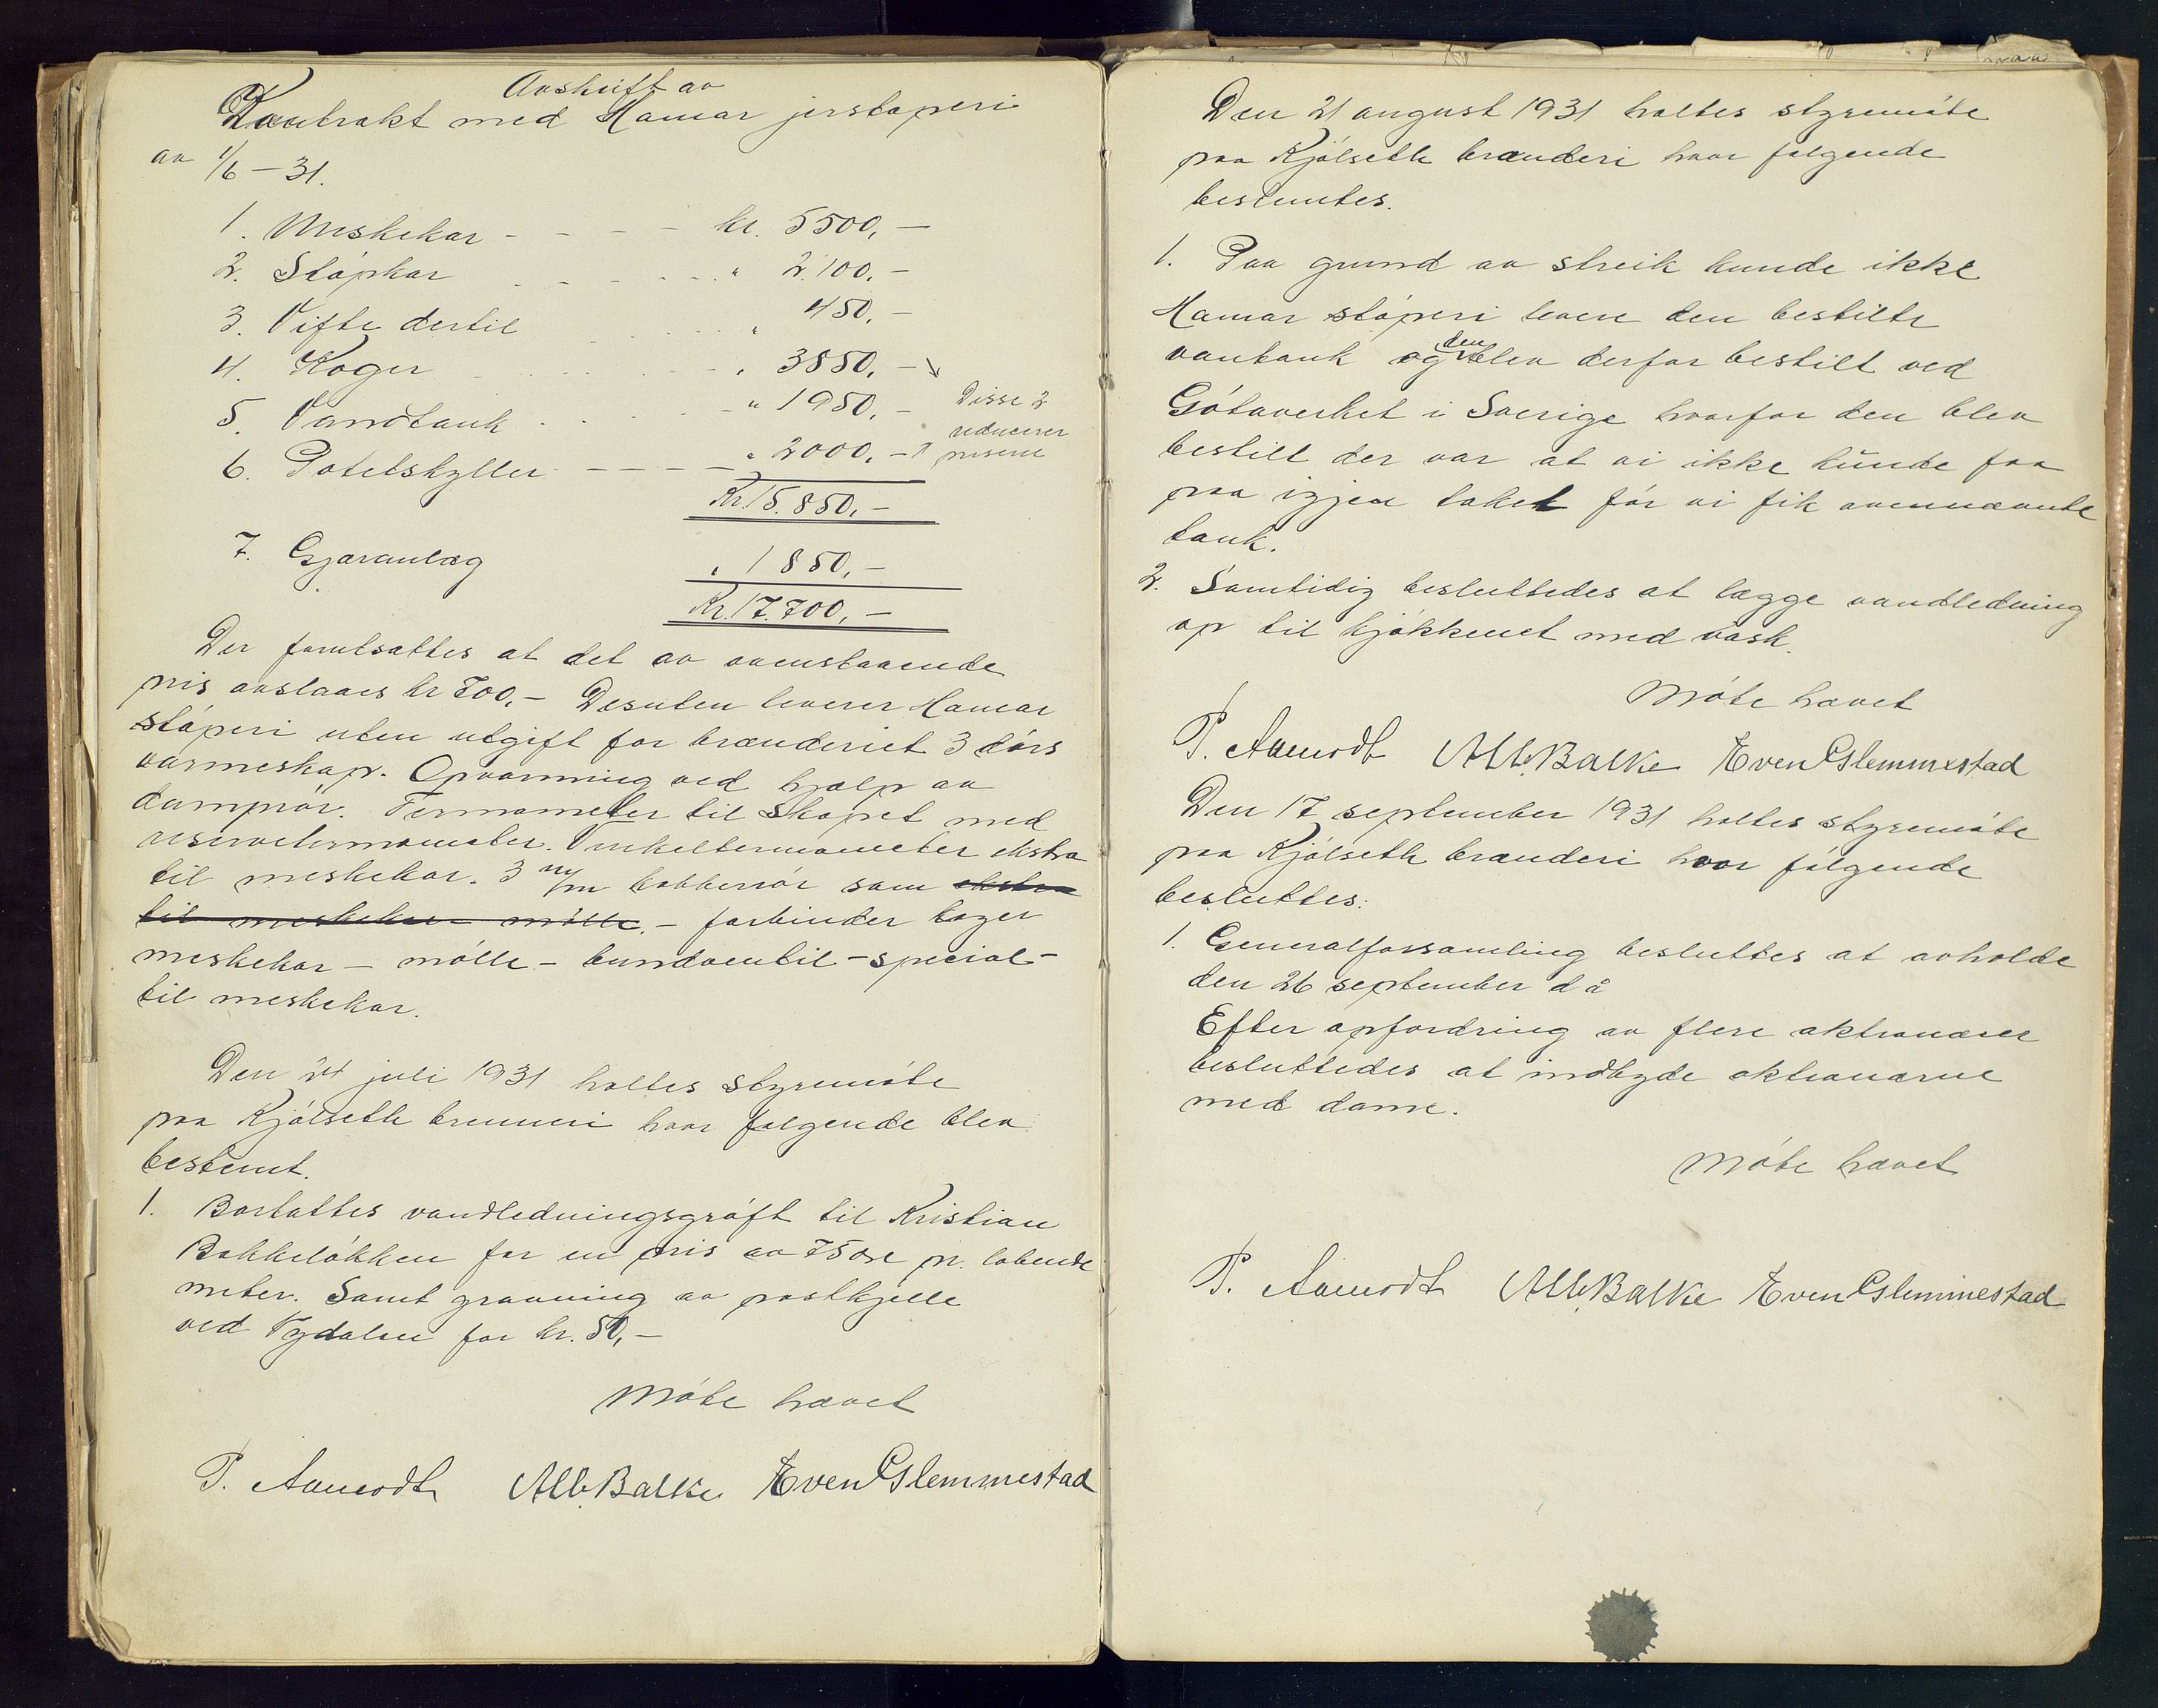 Avskrift av
Kontrakt med Hamar jerstøperi
av 1/6 – 31.
1. Meskekar - - - - kr. 5500,—
2. Støpkar - - - - " 2.100,—
3. Vifte dertil - - - " 450,—
4. Koger - - - - " 3850,—
5. Vandtank - - - - " 1950,—
Disse 2
reducerer
prisene
6. Potetskyller - - - - " 2000,—
Kr. 15.850,—
7. Gjæranlæg " 1850,—
Kr. 17.700,—
Der forutsættes at det av ovenstaaende
pris avslaaes kr 700,- Desuten leverer Hamar
støperi uten utgift for brænderiet 3 dørs
varmeskap. Opvarming ved hjælp av
damprør. Termometer til skapet med
reservetermometer. Vinkeltermometer ekstra
til meskekar. 3 m/m kobberrør som ekstra
til meskekar mølle.— forbinder koger
meskekar — mølle — bundventil - special-
til meskekar.
Den 24 juli 1931 holtes styremøte
paa Kjølseth brenneri hvor følgende blev
bestemt.
1. Bortsattes vandledningsgrøft til Kristian
Bakkeløkken for en pris av 75 øre pr. løbende
meter. Samt gravning av postkjelle
ved Nydalen for kr. 50,—
Møte hævet
P. Aamodt Alb. Balke Even Glemmestad
Den 21 august 1931 holtes styremøte
paa Kjølseth brænderi hvor følgende
bestemtes.
1. Paa grund av streik kunde ikke
Hamar støperi levere den bestilte
vantank og den blev derfor bestilt ved
Götaverket i Sverige hvorfor den blev
bestilt der var at vi ikke kunde faa
paa igjen taket før vi fik ovennævnte
tank.
2. Samtidig besluttedes at lægge vandledning
op til kjøkkenet med vask.
Møte hævet
P. Aamodt Alb. Balke Even Glemmestad
Den 17 september 1931 holtes styremøte
paa Kjølseth brænderi hvor følgende
besluttes:
1. Generalforsamling besluttes at avholde
den 26 september d å
Efter opfordring av flere aktionærer
besluttedes at indbyde aktionærne
med dame.
Møte hævet
P. Aamodt Alb. Balke Even Glemmestad